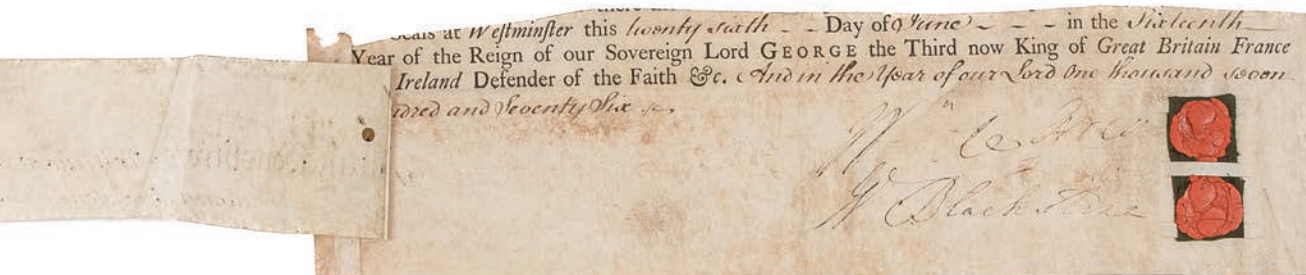 Seals at Westminster this twenty sixth - - Day of June - - - in the Sixteenth
Year of the Reign of our Sovereign Lord GEORGE the Third now King of Great Britain France
Ireland Defender of the Faith &c. And in the Year of our Lord One thousand seven
hundred and Seventy Six
Wm
W Blackstone